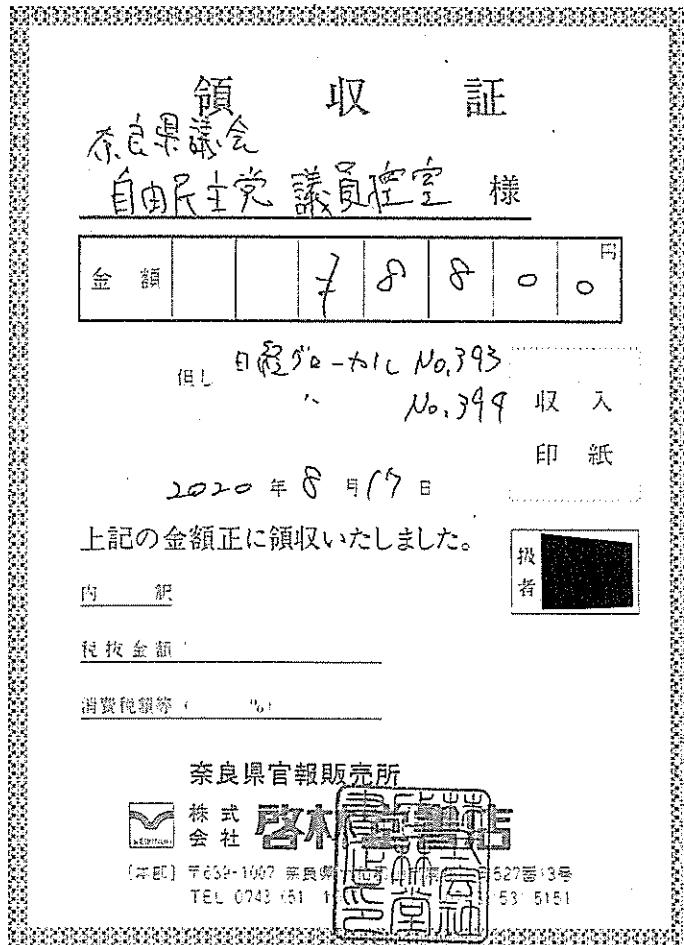 領収証
奈良県議会
自由民主党 議員控室 様
金額 ¥8800円
但し 日経グローカル No.393
〃 No.394
収入
印紙
2020年8月17日
上記の金額正に領収いたしました。
扱者
内訳
税抜金額
消費税額等( %)
奈良県官報販売所
株式会社 啓林堂書店
〔本部〕 〒639-1007 奈良県 527番13号
TEL 0743 (51) 53 5151